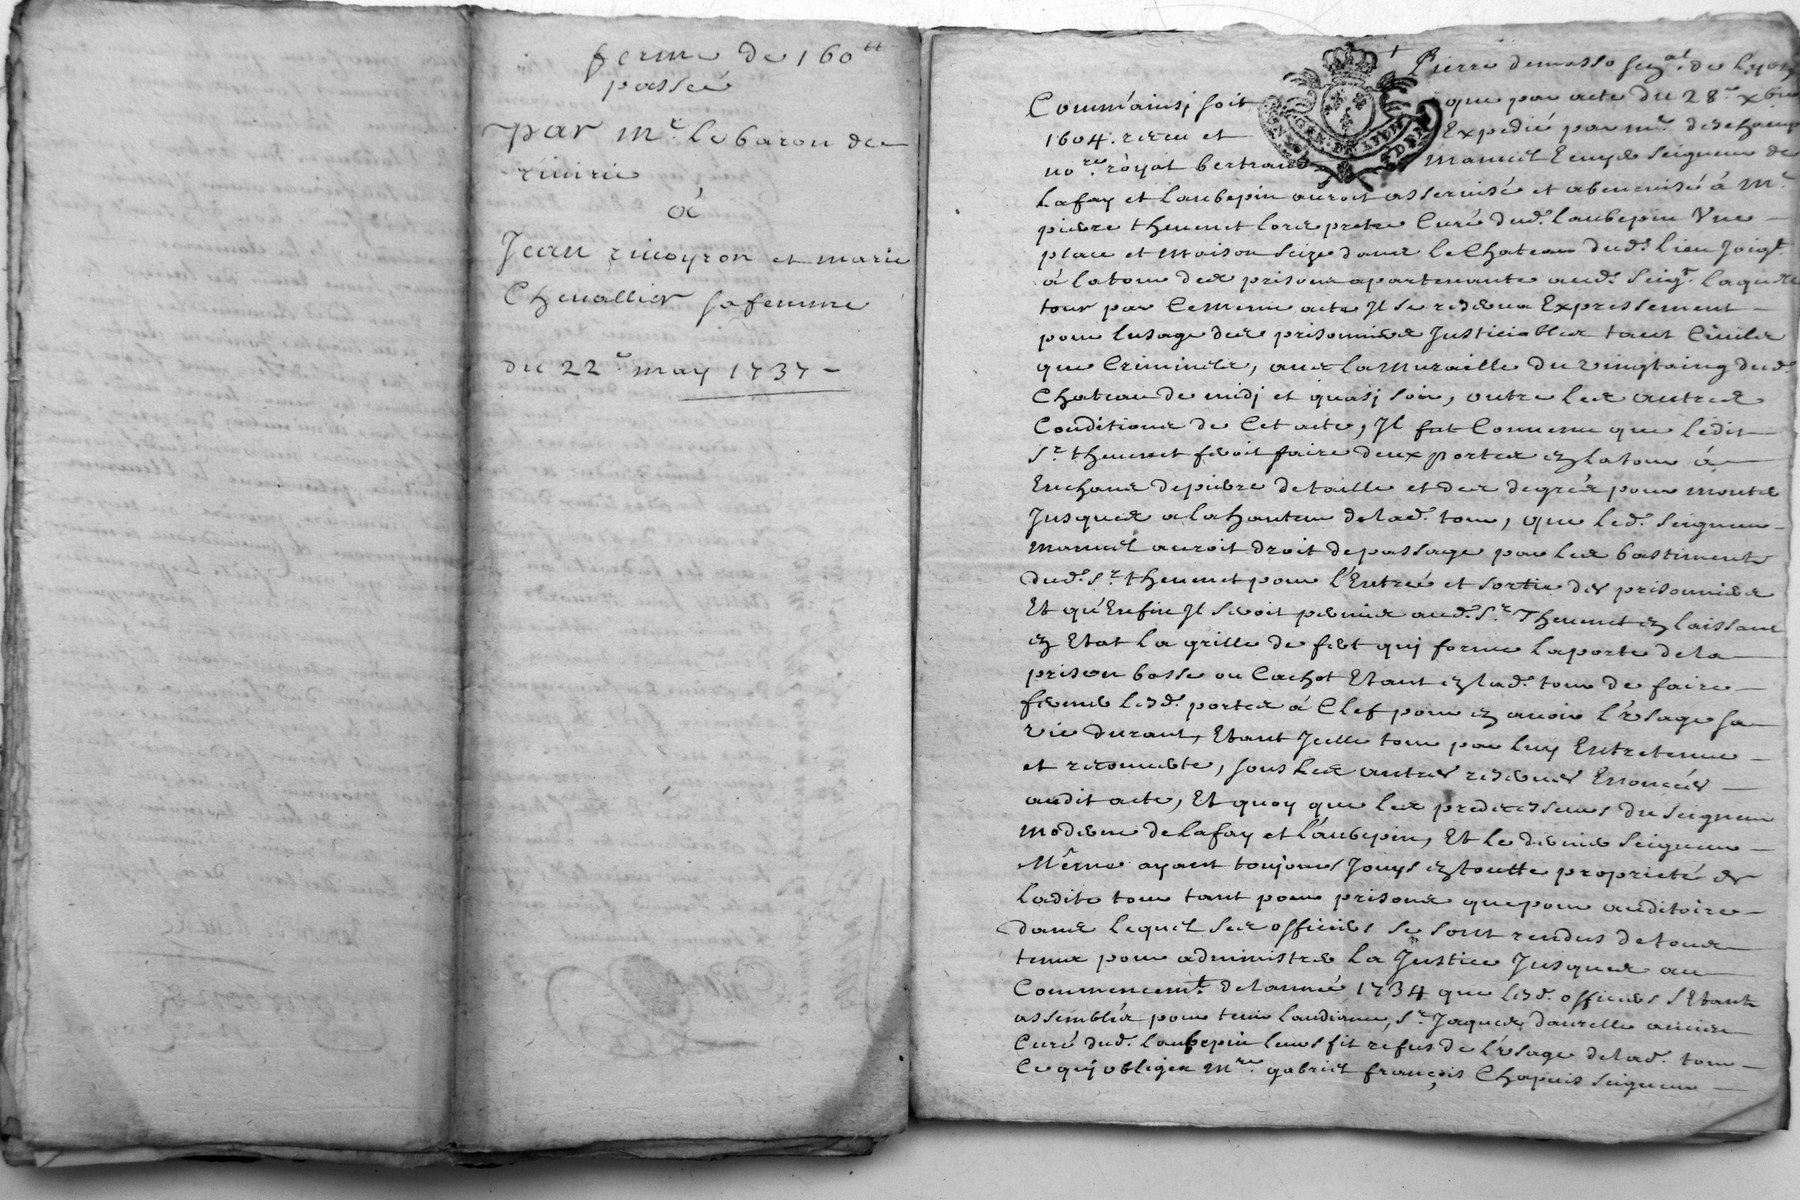 ferme de 160 tt
passée
par mr. le baron de
riuirie
à
Jean riuoyron et marie
Cheuallier sa femme
du 22e. may 1737 -
Pierre demasso senal. de Lyon
Comm'ainsj soit que par acte du 28e. xbre
1604. receu et Expedié par me. deschamp
nore. röyal bertrand manuel Ecuyer seigneur de
Lafay et Laubepin auroit asseruisé et abeneuisé à Mre.
pierre theuenet lors pretre Curé dud. laubepin Vne
place et maison seize dans le Chateau dud. lieu Joigt.
à la tour des prisons apartenante aud. seigr. laquelle
tour par Cememe acte Jl se reserua Expressement
pour lusage des prisonniers Justiciables tant Ciuils
que Criminels, auec la muraille du vingtaing dud.
Chateau de midj et quasj soir, outre les autres
Conditions de Cet acte, Jl fut Conuenu que ledit
sr. theuenet feroit faire deux portes en la tour à
Enchans de pierre de taille et des degrés pour monter
Jusques a la hauteur de lad. tour, que led. seigneur
manuel auroit droit de passage par les bastiments
dud. sr. theuenet pour l'Entrée et sortie des prisonniers
Et qu'Enfin Jl seroit permis aud. sr. Theuenet en laissant
en Etat la grille de fert quj forme la porte de la
prison basse ou Cachot Etant en lad. tour de faire
fermer lesd. portes à Clef pour en auoir l'vsage sa
vie durant, Etant Jcelle tour par luy Entretenue
et recouuerte, sous les autres reserues Enoncées
audit acte, Et quoy que les predecesseurs du seigneur
moderne de lafay et l'aubepin, Et le dernier seigneur
Même ayent toujours Jouys en toutte proprieté de
ladite tour tant pour prisons que pour auditoire
dans lequel ses officiers se sont rendus de tous
temps pour administrer la Justice Jusques au
Commencemt. de lannée 1734 que lesd. officiers s'Etant
assemblés pour tenir laudiance, sr. Jaques daurelle ancien
Curé dud. laubepin leurs fit refus de l'vsage de lad. tour
Ce quj obligea mre. gabriel françois Chapuis seigneur